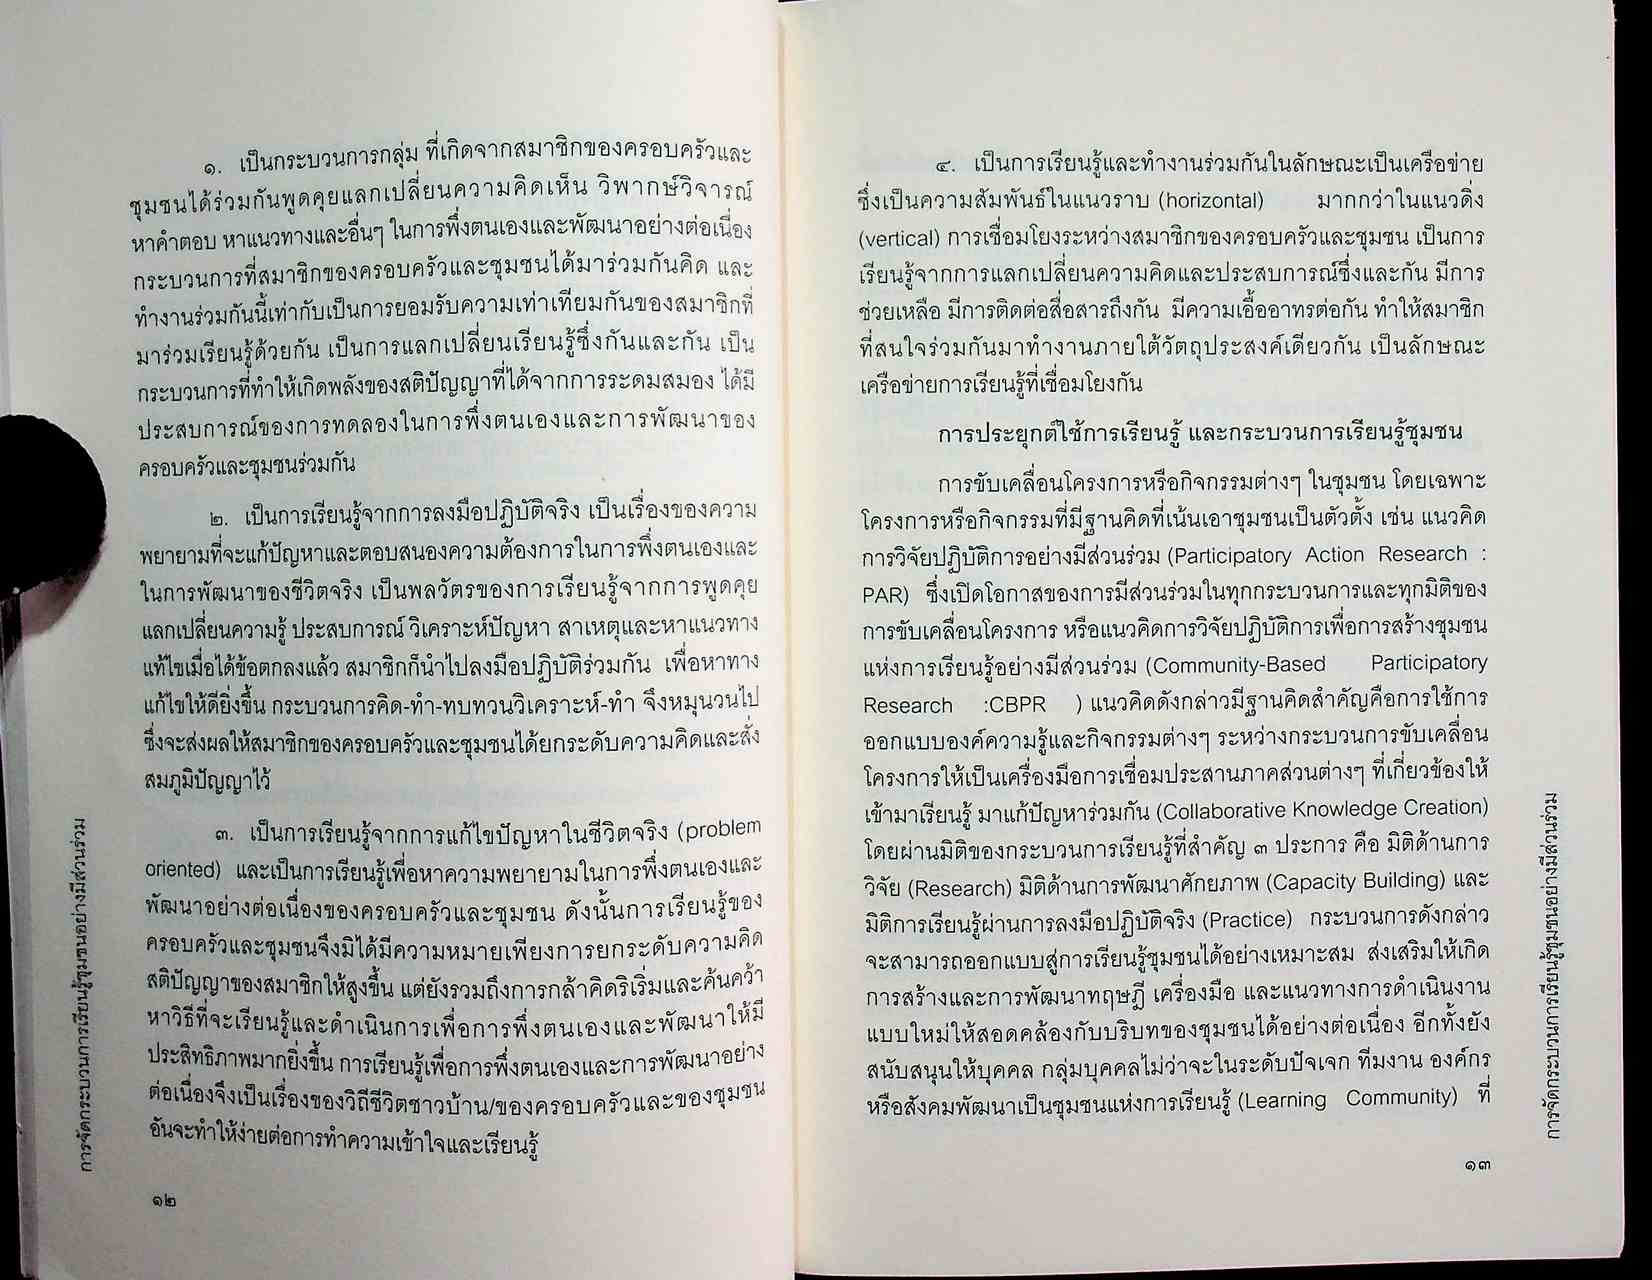 ๑. เป็นกระบวนการกลุ่ม ที่เกิดจากสมาชิกของครอบครัวและ
ชุมชนได้ร่วมกันพูดคุยแลกเปลี่ยนความคิดเห็น วิพากษ์วิจารณ์
หาคำตอบ หาแนวทางและอื่นๆ ในการพึ่งตนเองและพัฒนาอย่างต่อเนื่อง
กระบวนการที่สมาชิกของครอบครัวและชุมชนได้มาร่วมกันคิด และ
ทำงานร่วมกันนี้เท่ากับเป็นการยอมรับความเท่าเทียมกันของสมาชิกที่
มาร่วมเรียนรู้ด้วยกัน เป็นการแลกเปลี่ยนเรียนรู้ซึ่งกันและกัน เป็น
กระบวนการที่ทำให้เกิดพลังของสติปัญญาที่ได้จากการระดมสมอง ได้มี
ประสบการณ์ของการทดลองในการพึ่งตนเองและการพัฒนาของ
ครอบครัวและชุมชนร่วมกัน
๒. เป็นการเรียนรู้จากการลงมือปฏิบัติจริง เป็นเรื่องของความ
พยายามที่จะแก้ปัญหาและตอบสนองความต้องการในการพึ่งตนเองและ
ในการพัฒนาของชีวิตจริง เป็นพลวัตรของการเรียนรู้จากการพูดคุย
แลกเปลี่ยนความรู้ ประสบการณ์ วิเคราะห์ปัญหา สาเหตุและหาแนวทาง
แก้ไขเมื่อได้ข้อตกลงแล้ว สมาชิกก็นำไปลงมือปฏิบัติร่วมกัน เพื่อหาทาง
แก้ไขให้ดียิ่งขึ้น กระบวนการคิด-ทำ-ทบทวนวิเคราะห์-ทำ จึงหมุนวนไป
ซึ่งจะส่งผลให้สมาชิกของครอบครัวและชุมชนได้ยกระดับความคิดและสั่ง
สมภูมิปัญญาไว้
๓. เป็นการเรียนรู้จากการแก้ไขปัญหาในชีวิตจริง (problem
oriented) และเป็นการเรียนรู้เพื่อหาความพยายามในการพึ่งตนเองและ
พัฒนาอย่างต่อเนื่องของครอบครัวและชุมชน ดังนั้นการเรียนรู้ของ
ครอบครัวและชุมชนจึงมิได้มีความหมายเพียงการยกระดับความคิด
สติปัญญาของสมาชิกให้สูงขึ้น แต่ยังรวมถึงการกล้าคิดริเริ่มและค้นคว้า
หาวิธีที่จะเรียนรู้และดำเนินการเพื่อการพึ่งตนเองและพัฒนาให้มี
ประสิทธิภาพมากยิ่งขึ้น การเรียนรู้เพื่อการพึ่งตนเองและการพัฒนาอย่าง
ต่อเนื่องจึงเป็นเรื่องของวิถีชีวิตชาวบ้าน/ของครอบครัวและของชุมชน
อันจะทำให้ง่ายต่อการทำความเข้าใจและเรียนรู้
การจัดกระบวนการเรียนรู้ชุมชนอย่างมีส่วนร่วม
๑๒
๔. เป็นการเรียนรู้และทำงานร่วมกันในลักษณะเป็นเครือข่าย
ซึ่งเป็นความสัมพันธ์ในแนวราบ (horizontal) มากกว่าในแนวดิ่ง
(vertical) การเชื่อมโยงระหว่างสมาชิกของครอบครัวและชุมชน เป็นการ
เรียนรู้จากการแลกเปลี่ยนความคิดและประสบการณ์ซึ่งและกัน มีการ
ช่วยเหลือ มีการติดต่อสื่อสารถึงกัน มีความเอื้ออาทรต่อกัน ทำให้สมาชิก
ที่สนใจร่วมกันมาทำงานภายใต้วัตถุประสงค์เดียวกัน เป็นลักษณะ
เครือข่ายการเรียนรู้ที่เชื่อมโยงกัน
การประยุกต์ใช้การเรียนรู้ และกระบวนการเรียนรู้ชุมชน
การขับเคลื่อนโครงการหรือกิจกรรมต่างๆ ในชุมชน โดยเฉพาะ
โครงการหรือกิจกรรมที่มีฐานคิดที่เน้นเอาชุมชนเป็นตัวตั้ง เช่น แนวคิด
การวิจัยปฏิบัติการอย่างมีส่วนร่วม (Participatory Action Research :
PAR) ซึ่งเปิดโอกาสของการมีส่วนร่วมในทุกกระบวนการและทุกมิติของ
การขับเคลื่อนโครงการ หรือแนวคิดการวิจัยปฏิบัติการเพื่อการสร้างชุมชน
แห่งการเรียนรู้อย่างมีส่วนร่วม (Community-Based Participatory
Research :CBPR ) แนวคิดดังกล่าวมีฐานคิดสำคัญคือการใช้การ
ออกแบบองค์ความรู้และกิจกรรมต่างๆ ระหว่างกระบวนการขับเคลื่อน
โครงการให้เป็นเครื่องมือการเชื่อมประสานภาคส่วนต่างๆ ที่เกี่ยวข้องให้
เข้ามาเรียนรู้ มาแก้ปัญหาร่วมกัน (Collaborative Knowledge Creation)
โดยผ่านมิติของกระบวนการเรียนรู้ที่สำคัญ ๓ ประการ คือ มิติด้านการ
วิจัย (Research) มิติด้านการพัฒนาศักยภาพ (Capacity Building) และ
มิติการเรียนรู้ผ่านการลงมือปฏิบัติจริง (Practice) กระบวนการดังกล่าว
จะสามารถออกแบบสู่การเรียนรู้ชุมชนได้อย่างเหมาะสม ส่งเสริมให้เกิด
การสร้างและการพัฒนาทฤษฎี เครื่องมือ และแนวทางการดำเนินงาน
แบบใหม่ให้สอดคล้องกับบริบทของชุมชนได้อย่างต่อเนื่อง อีกทั้งยัง
สนับสนุนให้บุคคล กลุ่มบุคคลไม่ว่าจะในระดับปัจเจก ทีมงาน องค์กร
หรือสังคมพัฒนาเป็นชุมชนแห่งการเรียนรู้ (Learning Community) ที่
การจัดกระบวนการเรียนรู้ชุมชนอย่างมีส่วนร่วม
๑๓